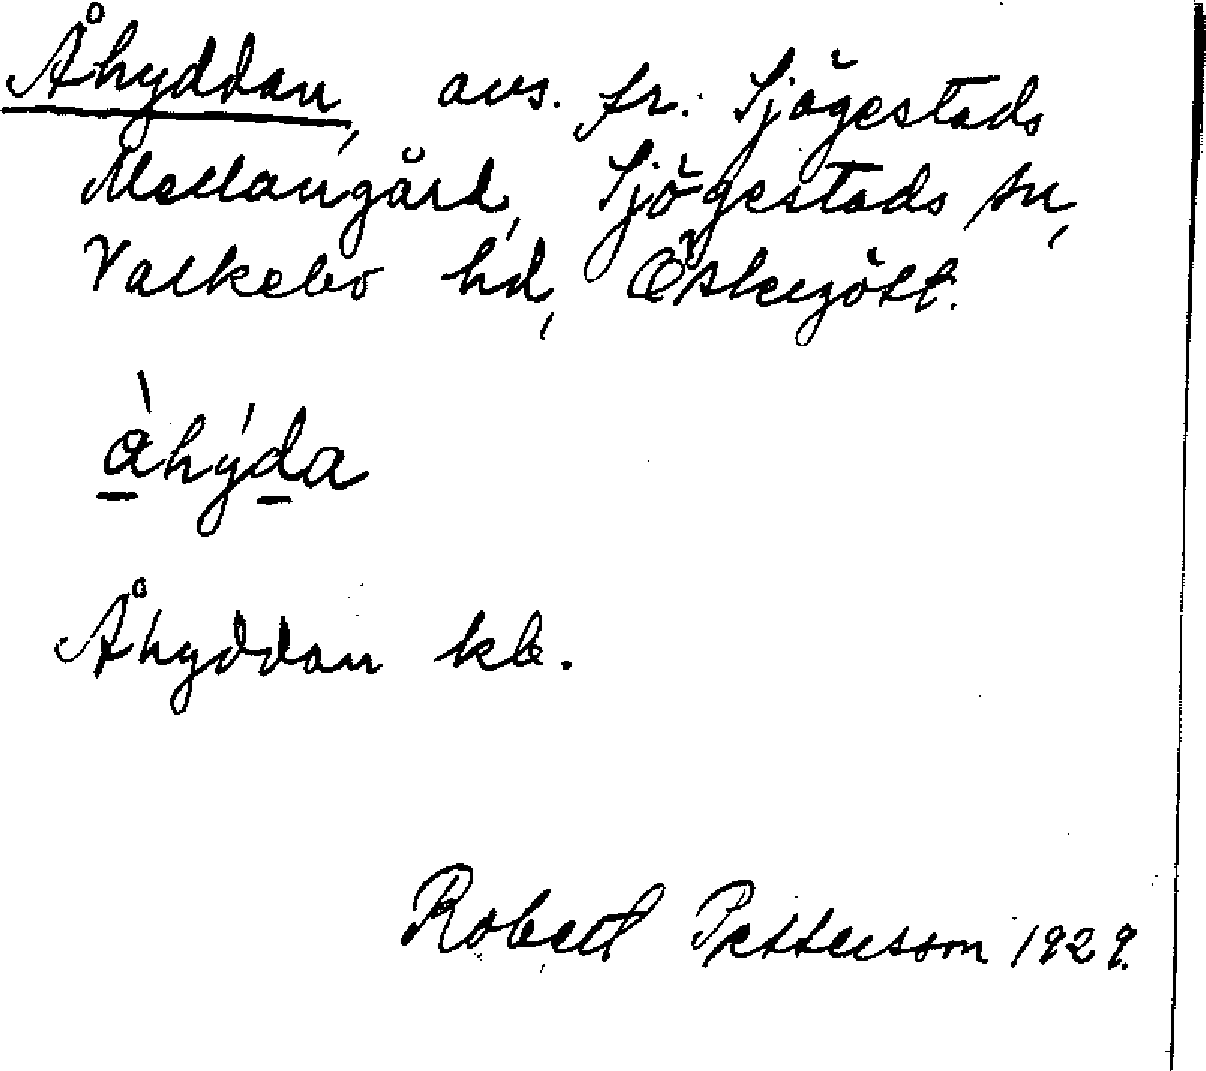 Åhyddan, avs. fr. Sjögestads
Mellangård, Sjögestads sn,
Valkebo hd, Östergötl.
åhýda
Åhyddan kb.
Robert Pettersson 1929.